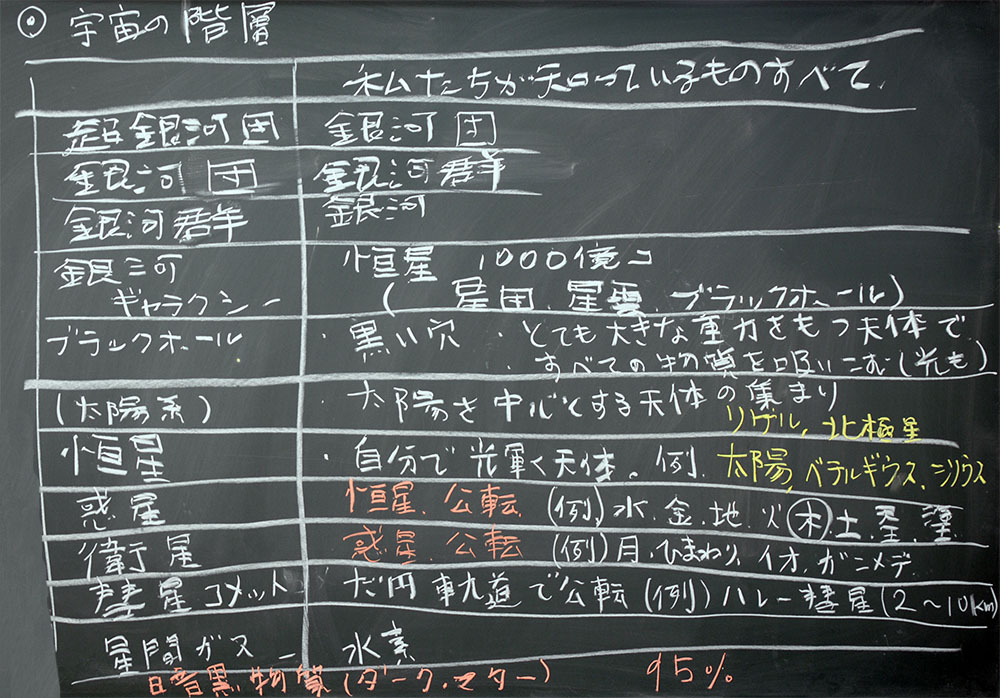 ⊙ 宇宙の階層
私たちが知っているものすべて、
超銀河団 銀河団
銀河団 銀河群
銀河群 銀河
銀河 恒星 1000億コ
ギャラクシー (星団、星雲、ブラックホール)
ブラックホール ・黒い穴 ・とても大きな重力をもつ天体で
すべての物質を吸いこむ(光も)
(太陽系) ・太陽を中心とする天体の集まり
リゲル, 北極星
恒星 ・自分で光輝く天体。例. 太陽, ベテルギウス、シリウス
惑星 恒星、公転 (例) 水、金、地、火 木、土
衛星 惑星、公転 (例) 月、ひまわり、イオ、ガニメデ
彗星 コメット だ円軌道で公転 (例) ハレー彗星 (2〜10km)
星間ガス 水素
暗黒物質(ダーク・マター) 95%